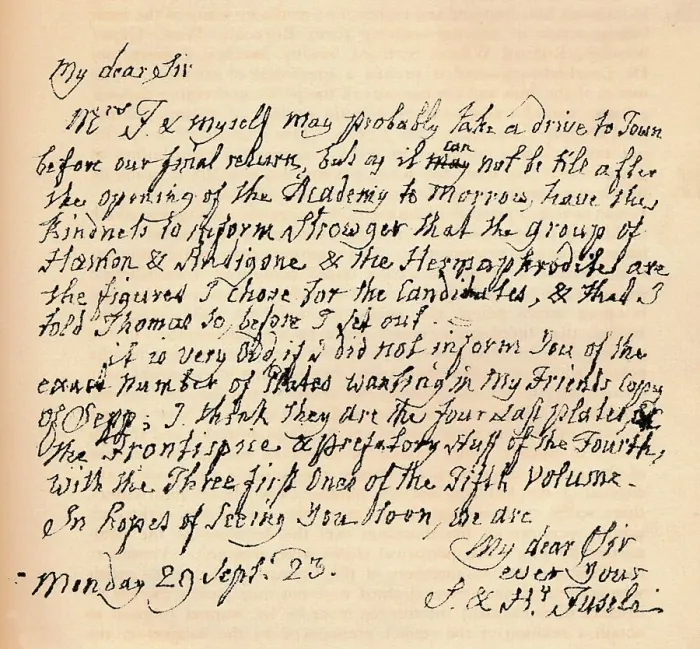 My dear Sir
Mrs F. & myself may probably take a drive to Town
before our final return, but as it may can not be till after
the opening of the Academy to Morrow, have the
Kindness to inform Strowger that the group of
Hæmon & Antigone & the Hermaphrodite are
the figures I chose for the Candidates, & that I
told Thomas so, before I set out
it is very Odd, if I did not inform You of the
exact number of Plates wanting in My Friends Copy
of Sepp; I think they are the four Last plates,
the Frontispice & prefatory Stuff of the Fourth,
with the Three first Ones of the Fifth Volume.
In hopes of Seeing You Soon, we are
My dear Sir
ever Yours
S. & Hy Fuseli
Monday 29 Sept. 23.